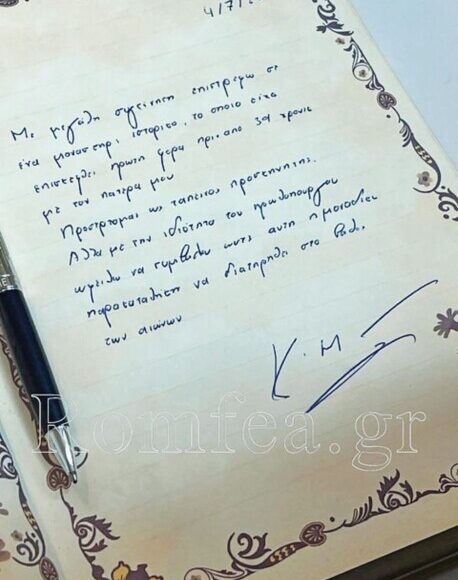 4/7/
Με μεγάλη συγκίνηση επιστρέφω σε
ένα μοναστήρι ιστορικό, το οποίο είχα
επισκεφθεί πρώτη φορά πριν από 39 χρόνια
με τον πατέρα μου.
Προσέρχομαι ως ταπεινός προσκυνητής.
Αλλά με την ιδιότητα του πρωθυπουργού
οφείλω να συμβάλω ώστε αυτή η μοναδική
παρακαταθήκη να διατηρηθεί στο βάθος
των αιώνων
Κ. Μ
Romfea.gr